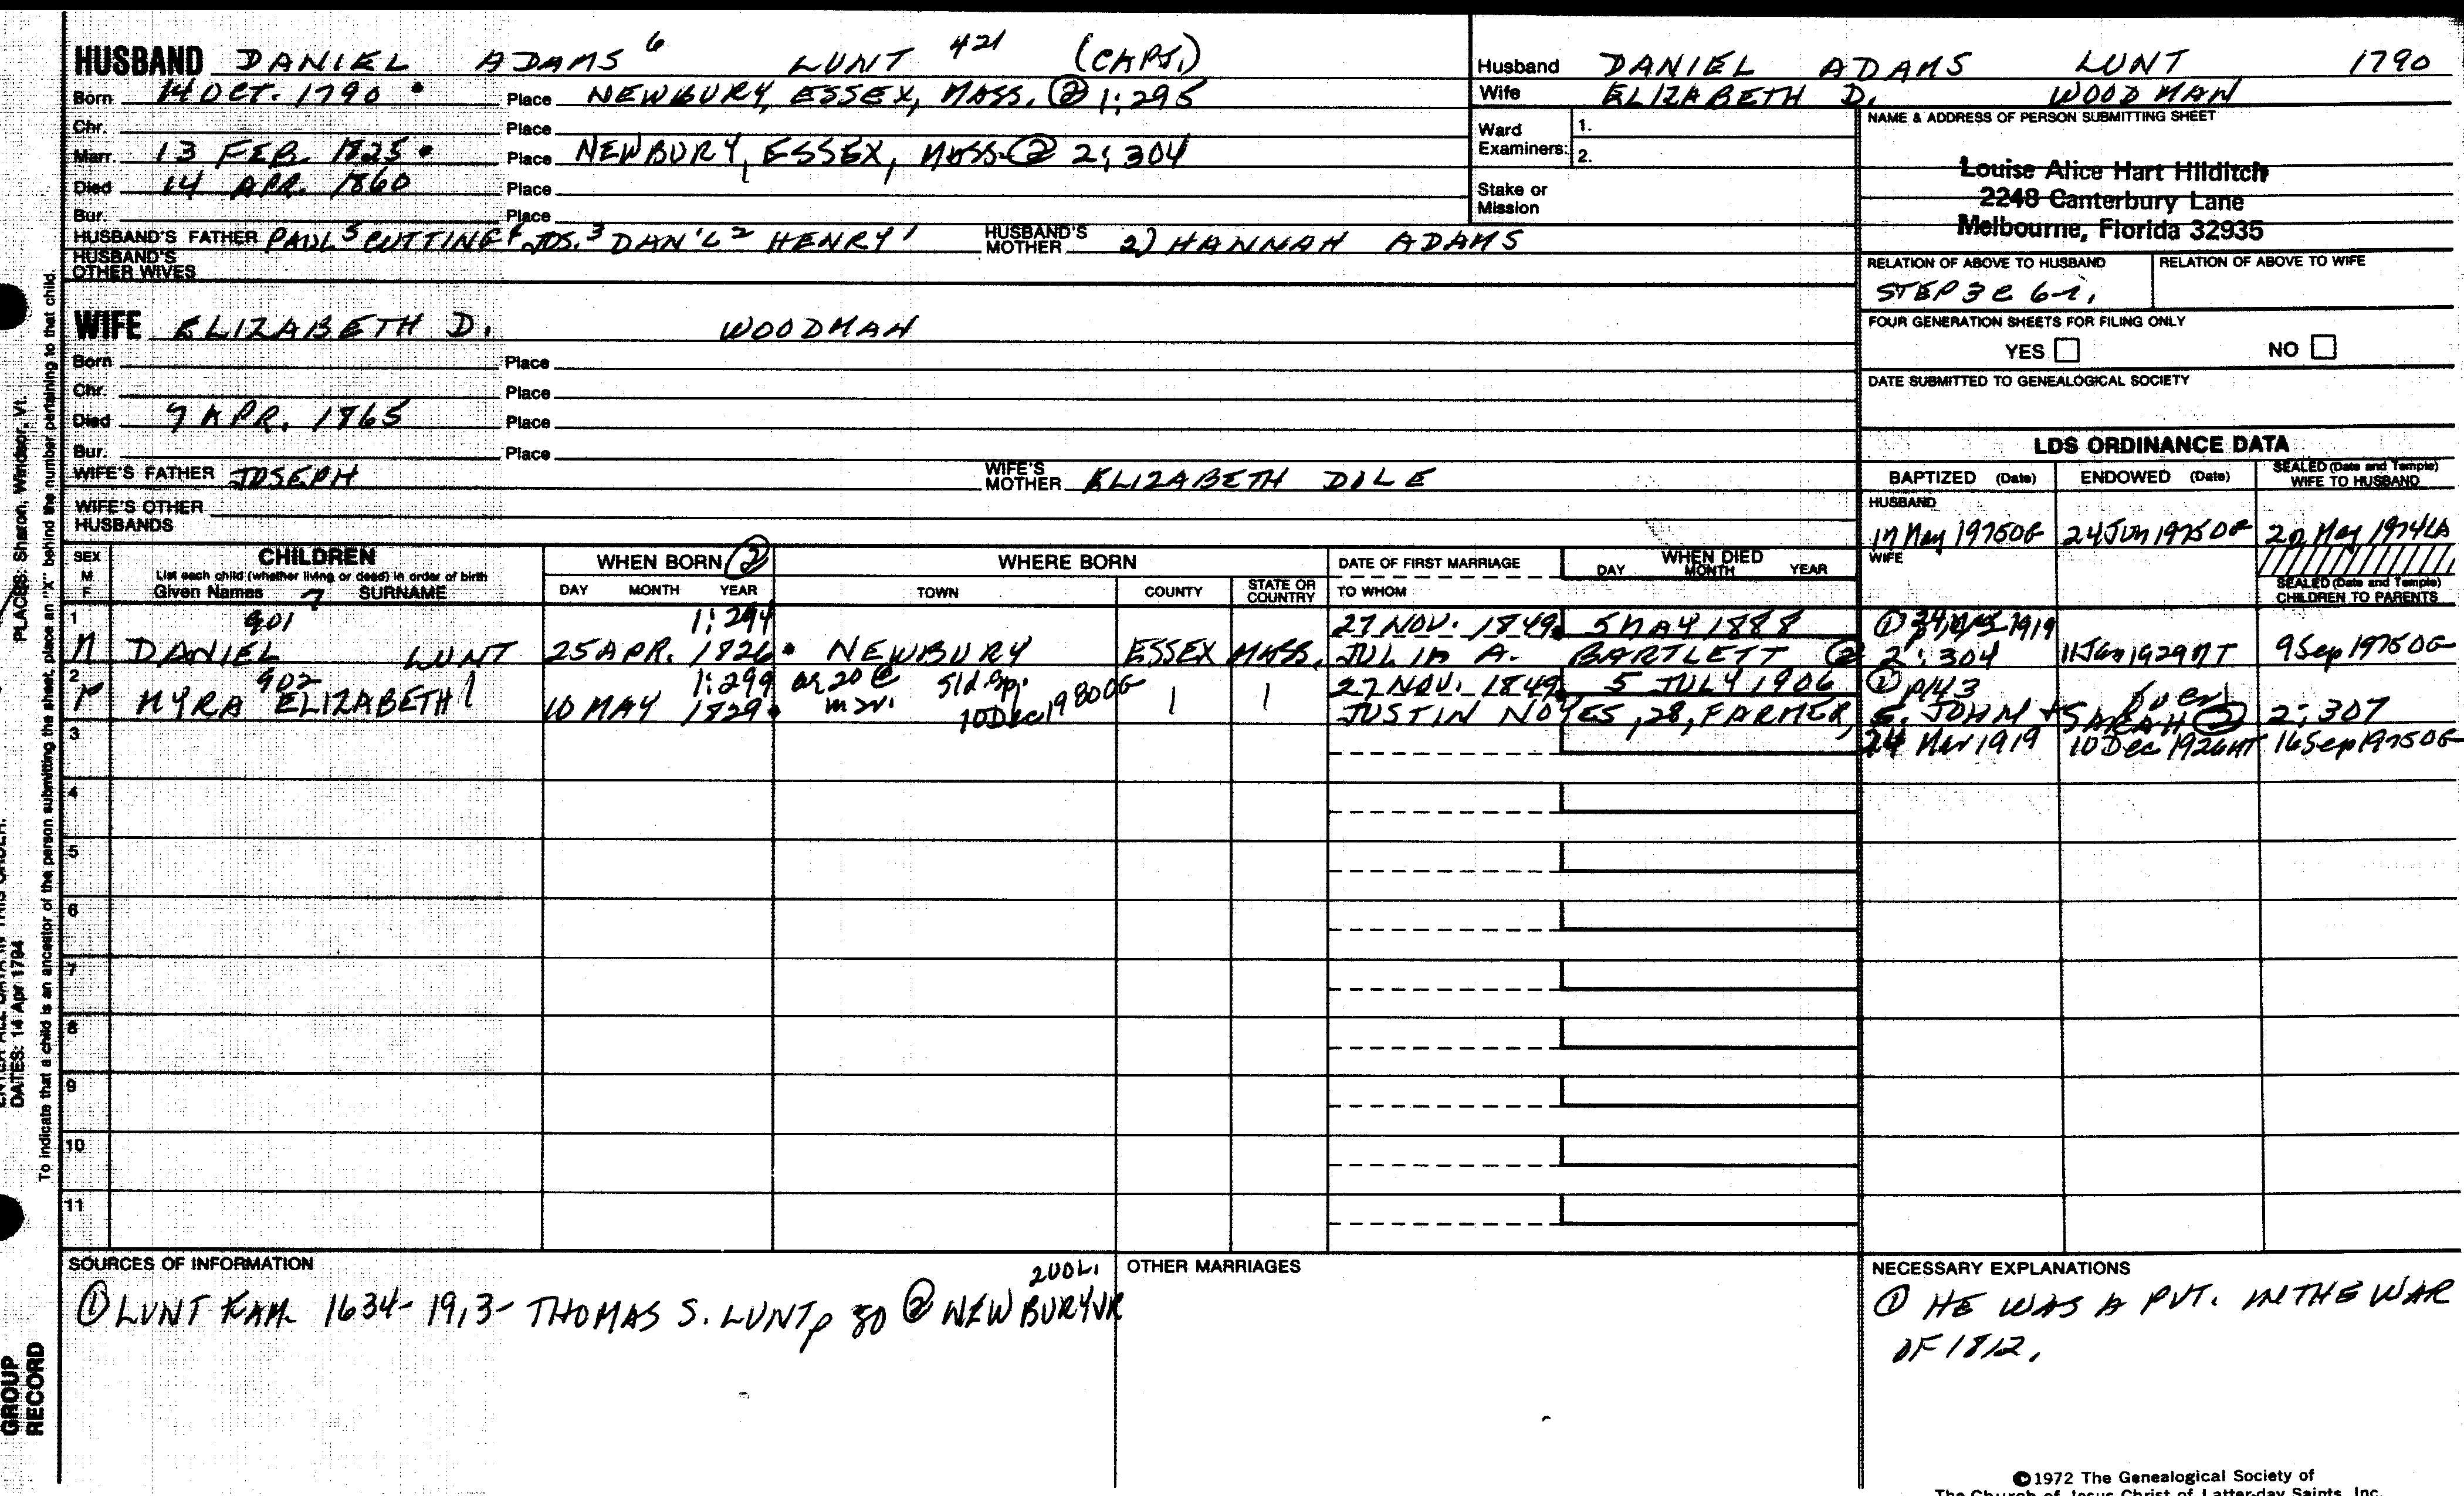 HUSBAND DANIEL ADAMS 6 LUNT 421 (CAPT.)
Born 14 OCT. 1790 Place NEWBURY, ESSEX, MASS. ② 1:295
Chr. Place
Marr. 13 FEB. 1825 Place NEWBURY, ESSEX, MASS. ② 2:304
Died 14 APR. 1860 Place
Bur. Place
HUSBAND'S FATHER PAUL 5 CUTTING 4 JOS. 3 DAN'L 2 HENRY 1 HUSBAND'S MOTHER 2) HANNAH ADAMS
HUSBAND'S OTHER WIVES
WIFE ELIZABETH D. WOODMAN
Born Place
Chr. Place
Died 7 APR. 1865 Place
Bur. Place
WIFE'S FATHER JOSEPH WIFE'S MOTHER ELIZABETH DOLE
WIFE'S OTHER HUSBANDS
Husband DANIEL ADAMS LUNT 1790
Wife ELIZABETH D. WOODMAN
Ward Examiners: 1.
2.
Stake or Mission
NAME & ADDRESS OF PERSON SUBMITTING SHEET
Louise Alice Hart Hilditch
2248 Canterbury Lane
Melbourne, Florida 32935
RELATION OF ABOVE TO HUSBAND RELATION OF ABOVE TO WIFE
STEP 3 C 6-r.
FOUR GENERATION SHEETS FOR FILING ONLY
YES NO
DATE SUBMITTED TO GENEALOGICAL SOCIETY
LDS ORDINANCE DATA
BAPTIZED (Date) ENDOWED (Date) SEALED (Date and Temple) WIFE TO HUSBAND
HUSBAND
17 May 1975OG 24 Jun 1975OG 20 May 1974LA
WIFE
SEALED (Date and Temple) CHILDREN TO PARENTS
SEX M F CHILDREN WHEN BORN ② WHERE BORN DATE OF FIRST MARRIAGE WHEN DIED
List each child (whether living or dead) in order of birth
Given Names 7 SURNAME DAY MONTH YEAR TOWN COUNTY STATE OR COUNTRY TO WHOM DAY MONTH YEAR
1 901 1:294 27 NOV. 1849 5 MAY 1888 ① 1919
M DANIEL LUNT 25 APR. 1826 NEWBURY ESSEX MASS. JULIA A. BARTLETT ② 2:304 11 Jan 1929MT 9 Sep 1975OG
2 902 1:299 ae 20 @ Sld Sp. 27 NOV. 1849 5 JULY 1906 ① p143
MYRA ELIZABETH 10 MAY 1829 mar. 10 Dec 1980OG JUSTIN NOYES, 28, FARMER, S. JOHN + SARAH ② 2:307
3 24 Mar 1919 10 Dec 1926MT 16 Sep 1975OG
4
5
6
7
8
9
10
11
SOURCES OF INFORMATION
2VOL.
① LUNT FAM. 1634-1913- THOMAS S. LUNT p 80 ② NEWBURY VR
OTHER MARRIAGES
NECESSARY EXPLANATIONS
① HE WAS A PVT. IN THE WAR
OF 1812.
©1972 The Genealogical Society of
The Church of Jesus Christ of Latter-day Saints, Inc.
PLACES: Sharon, Windsor, Vt.
DATES: 14 Apr 1794
To indicate that a child is an ancestor of the person submitting the sheet, place an "X" behind the number pertaining to that child.
GROUP
RECORD